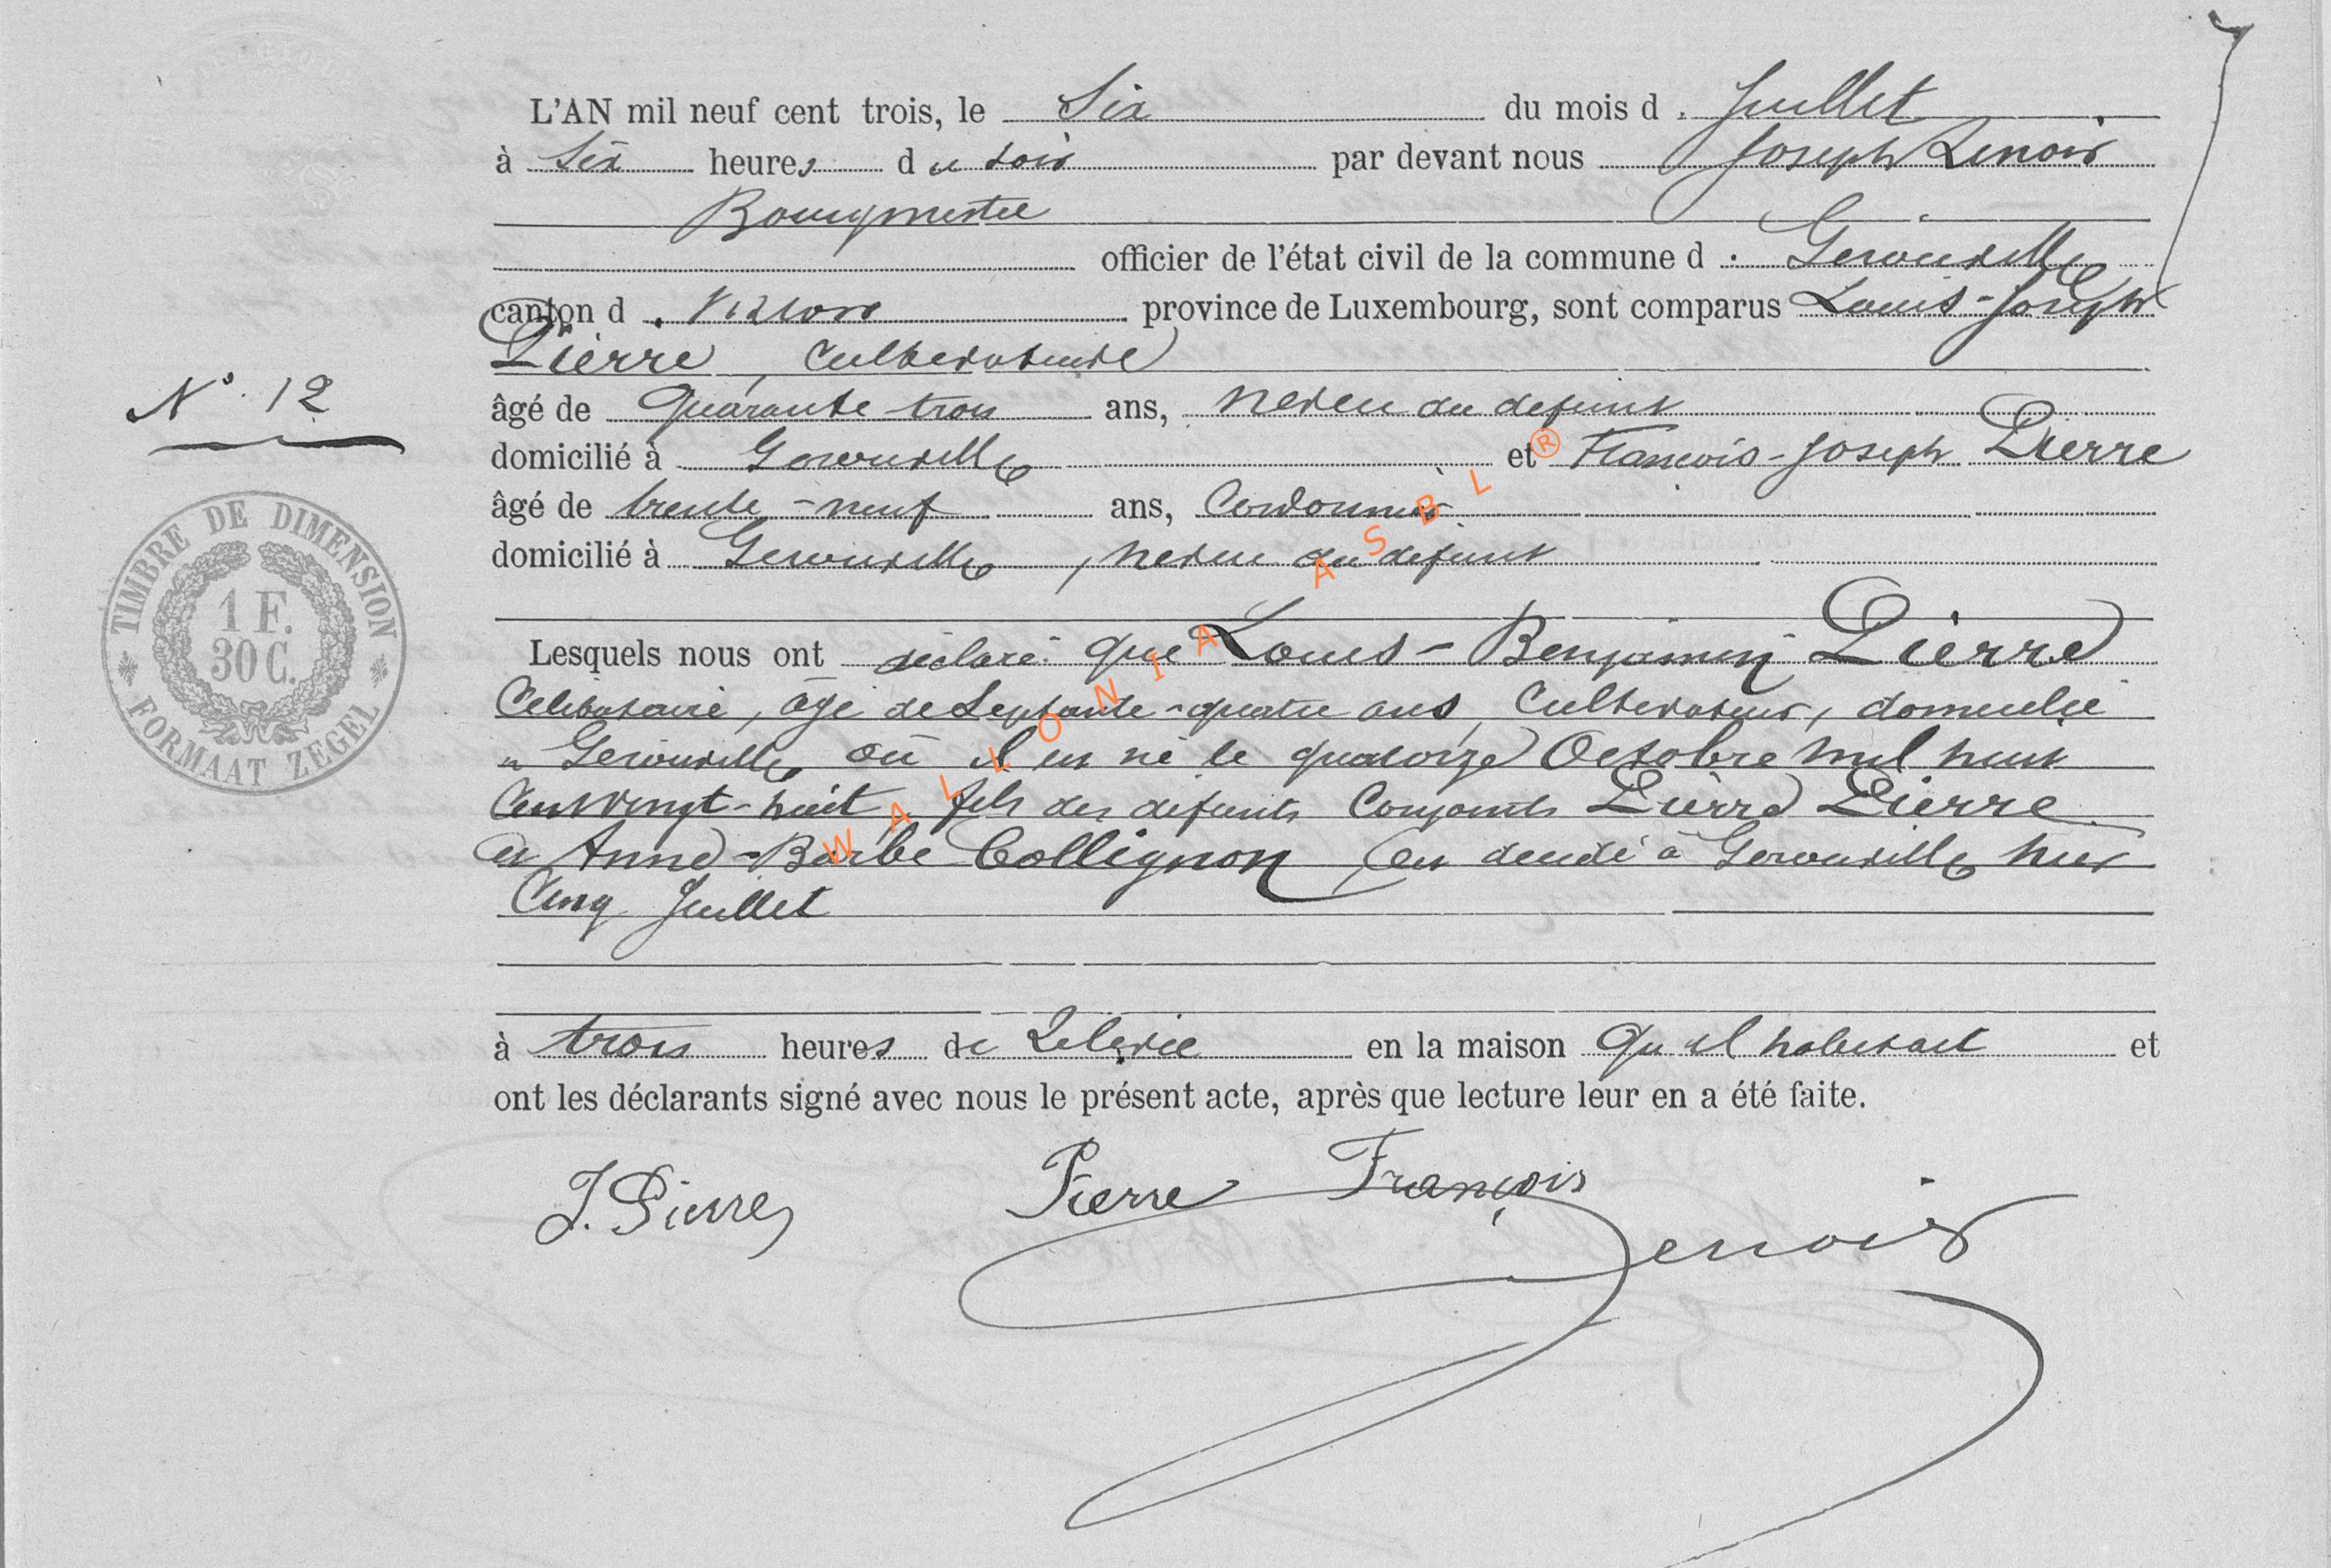 7
L'AN mil neuf cent trois, le Six du mois d. Juillet
à Six heures du soir par devant nous Joseph Lenoir
Bourgmestre
officier de l'état civil de la commune d. Gerouville
canton d. Virton province de Luxembourg, sont comparus Louis-Joseph
Pierre, cultivateur
N° 12
âgé de quarante trois ans, neveu du defunt
domicilié à Gerouville et Francois-Joseph Pierre
âgé de trente-neuf ans, Cordonnier
domicilié à Gerouville, neveu du defunt
TIMBRE DE DIMENSION
1 F.
30 C.
FORMAAT ZEGEL
Lesquels nous ont déclaré que Louis-Benjamin Pierre
Celibataire, âgé de Septante-quatre ans, Cultivateur, domicilié
à Gerouville où il est né le quatorze Octobre mil huit
Cent vingt-huit, fils des défunts Conjoints Pierre Pierre
et Anne-Barbe Collignon, est decédé à Gerouville hier
Cinq Juillet
à trois heures de Relevée en la maison qu'il habitait et
ont les déclarants signé avec nous le présent acte, après que lecture leur en a été faite.
J. Pierre Pierre François
Lenoir
WALLONIA ASBL ®